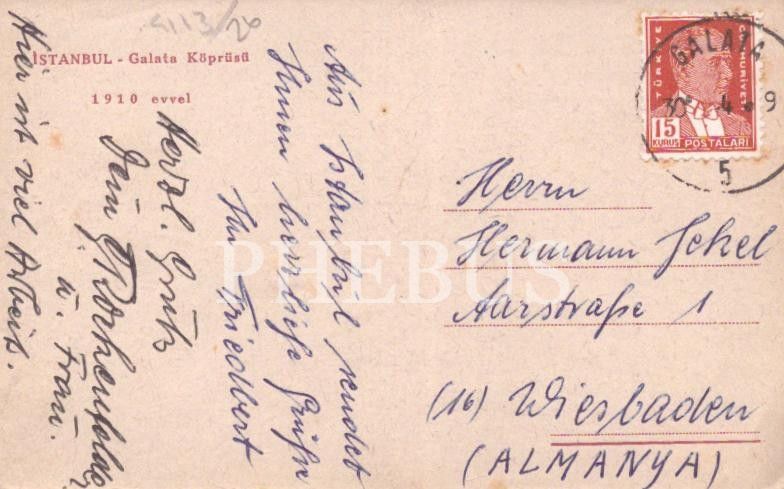 4113/26
İSTANBUL - Galata Köprüsü
1910 evvel
Aus Istanbul sendet
Ihnen herrliche Grüße
Ihr Friedbert
Herzl. Gruß
Dein
u. Frau.
Hier ist viel Arbeit.
TÜRKİYE CUMHURİYETİ
15
KURUŞ
POSTALARI
GALATA
30 4 9
5
Herrn
Hermann Jekel
Aarstraße 1
(16) Wiesbaden
(ALMANYA)
PHEBUS